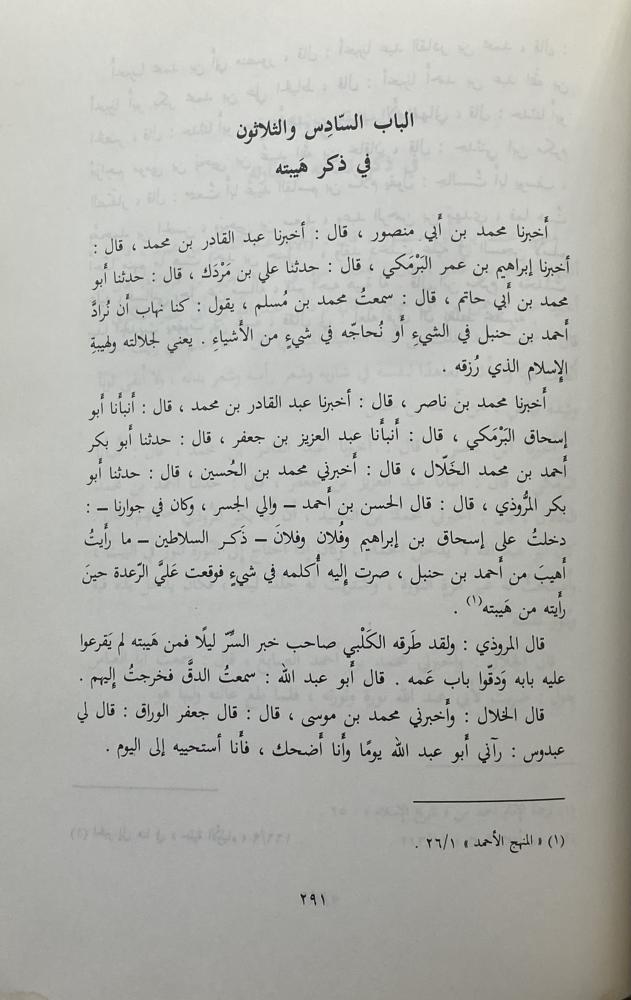 الباب السّادِس والثلاثون
في ذكر هَيبته
أَخبرنا محمد بن أَبي منصور ، قال : أخبرنا عبد القادر بن محمد ، قال :
أخبرنا إبراهيم بن عمر البَرْمَكي ، قال : حدثنا علي بن مَرْدَك ، قال : حدثنا أَبو
محمد بن أَبي حاتم ، قال : سمعتُ محمد بن مُسلم ، يقول : كنا نهاب أَن نُرادَّ
أَحمد بن حنبل في الشيءِ أَو نُحاجّه في شيءٍ من الأَشياءِ . يعني لجلالته ولهيبةِ
الإِسلام الذي رُزقه .
أَخبرنا محمد بن ناصر ، قال : أخبرنا عبد القادر بن محمد ، قال : أَنبأَنا أَبو
إسحاق البَرْمَكي ، قال : أَنبأَنا عبد العزيز بن جعفر ، قال : حدثنا أَبو بكر
أَحمد بن محمد الخَلّال ، قال : أَخبرني محمد بن الحُسين ، قال : حدثنا أَبو
بكر المرُّوذي ، قال : قال الحسن بن أَحمد – والي الجسر ، وكان في جوارنا – :
دخلتُ على إسحاق بن إبراهيم وفُلان وفلانَ – ذَكر السلاطين – ما رأَيتُ
أَهيبَ من أَحمد بن حنبل ، صرت إِليه أُكلمه في شيءٍ فوقعت عَليَّ الرّعدة حينَ
رأَيته من هَيبته(١) .
قال المروذي : ولقد طَرقه الكَلْبي صاحب خبر السرِّ ليلًا فمن هَيبته لم يَقرعوا
عليه بابه وَدقّوا باب عَمه . قال أَبو عبد الله : سمعتُ الدقَّ فخرجتُ إِليهم .
قال الخلال : وأَخبرني محمد بن موسى ، قال : قال جعفر الوراق : قال لي
عبدوس : رآني أَبو عبد الله يومًا وأَنا أَضحك ، فأَنا أستحييه إلى اليوم .
(١) « المنهج الأحمد » ٢٦/١ .
٢٩١